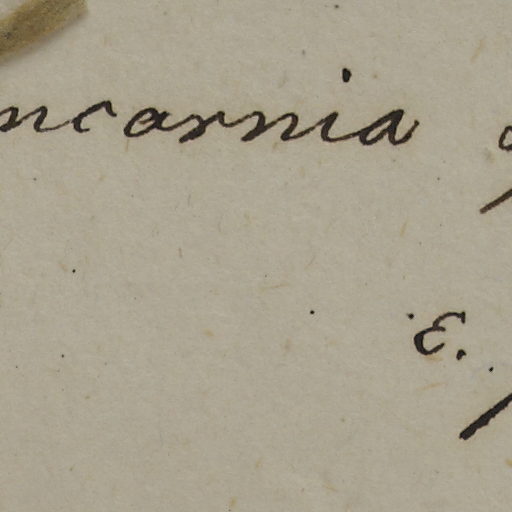 ncarnia
E.